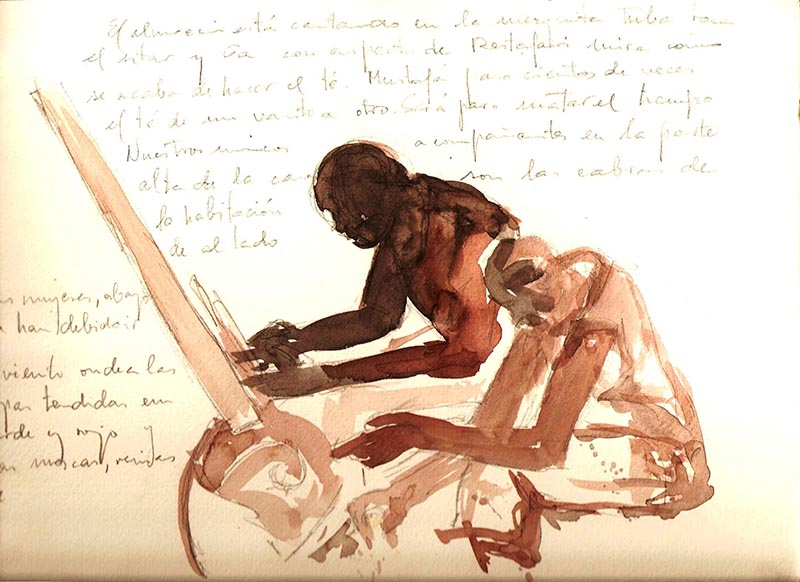 El almuecin está cantando en la mezquita Tuba toca
el sitar y con aspecto de Restafari mira como
se acaba de hacer el té. Mustafá pasa cientos de veces
el té de un vasito a otro. Será para matar el tiempo
Nuestros unicos acompañantes en la parte
alta de la casa son las cabras de
la habitación
de al lado
as mujeres, abajo
han debido ir
viento ondea las
pas tendidas en
rde y rojo y
as moscas, venidas